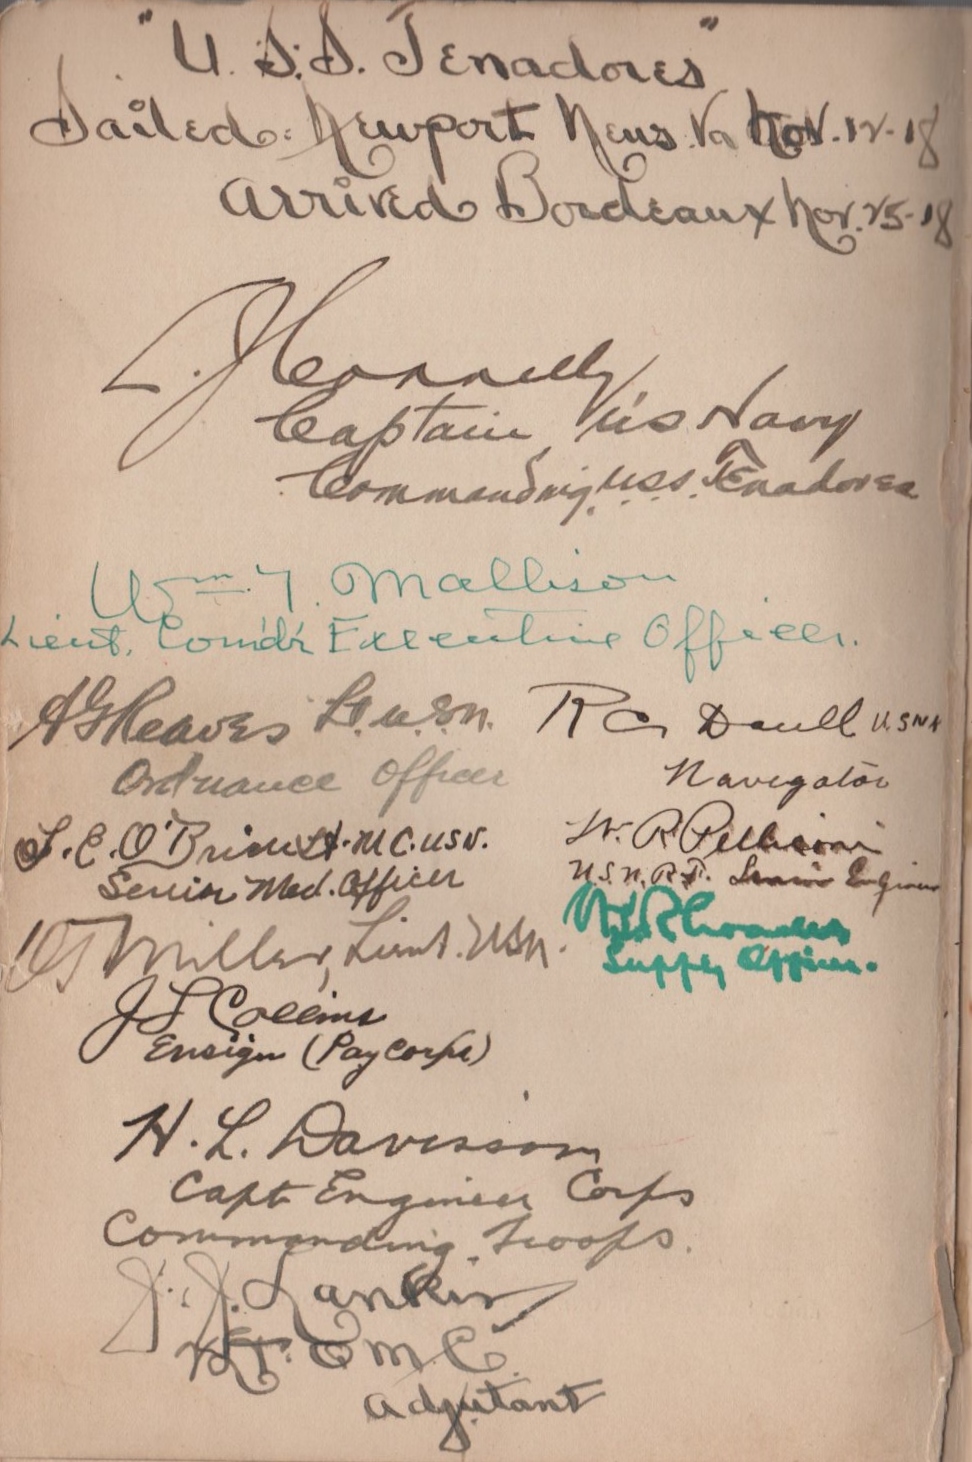 "U.S.S. Tenadores"
Sailed: Newport News Va Nov. 12-18
Arrived Bordeaux Nov. 25-18
L. J. Connelly
Captain, U S Navy
Commanding, U.S.S. Tenadores
Wm. Y. Mallison
Lieut. Comd'r Executive Officer.
A G Reaves Lt. U.S.N.
Ordnance Officer
R C Daull U.S.N
Navigator
O'Brien Lt. M.C. U.S.N.
Senior Med. Officer
W. R.
U.S.N.R.F. Senior Engineer
Supply Officer.
Miller, Lieut. USN.
J L Collins
Ensign (Pay Corps)
H. L. Davisson
Capt Engineer Corps
Commanding Troops.
J. J. Lankin
Q M C.
Adjutant